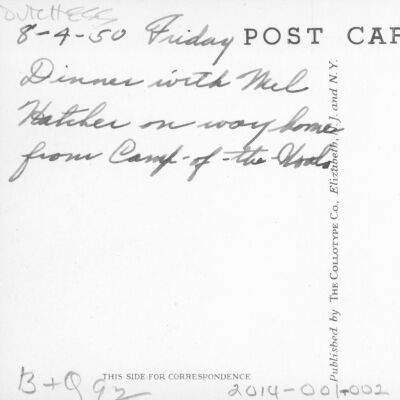 DUTCHESS
8-4-50 Friday POST CAR
Dinner with Mel
Hatcher on way home
from Camp-of-the-Woods
Published by THE COLLOTYPE CO., Elizabeth, N.J. and N.Y.
THIS SIDE FOR CORRESPONDENCE
B+Q
2014-001-002